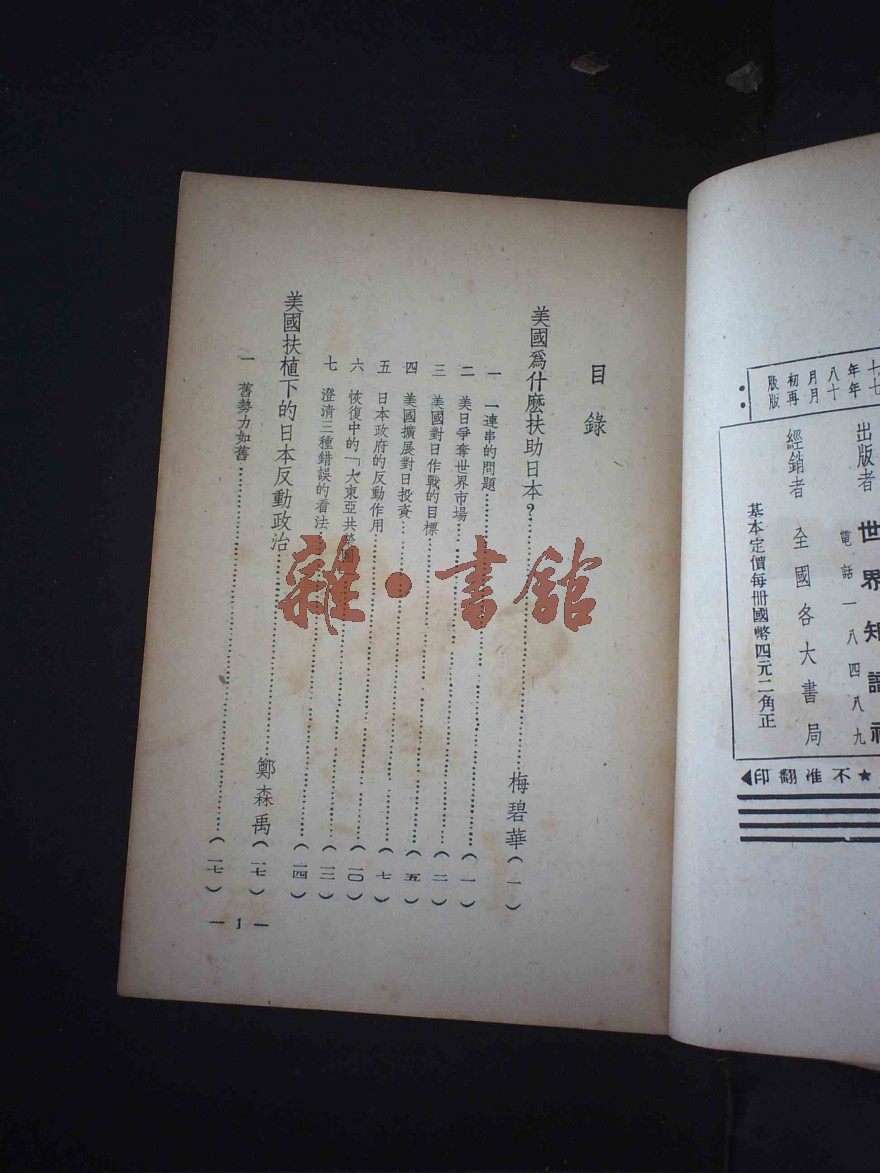 七年八月初版
七年十月再版
出版者 世界知識社
電話一八四八九
經銷者 全國各大書局
基本定價每冊國幣四元二角正
★不准翻印
目錄
美國爲什麼扶助日本?……梅碧華(一)
一 一連串的問題……(一)
二 美日爭奪世界市場……(二)
三 美國對日作戰的目標……(五)
四 美國擴展對日投資……(七)
五 日本政府的反動作用……(一〇)
六 恢復中的「大東亞共榮圈」……(一三)
七 澄清三種錯誤的看法……(一四)
美國扶植下的日本反動政治……鄭森禹(一七)
一 舊勢力如舊……(一七)
— 1 —
雜·書館